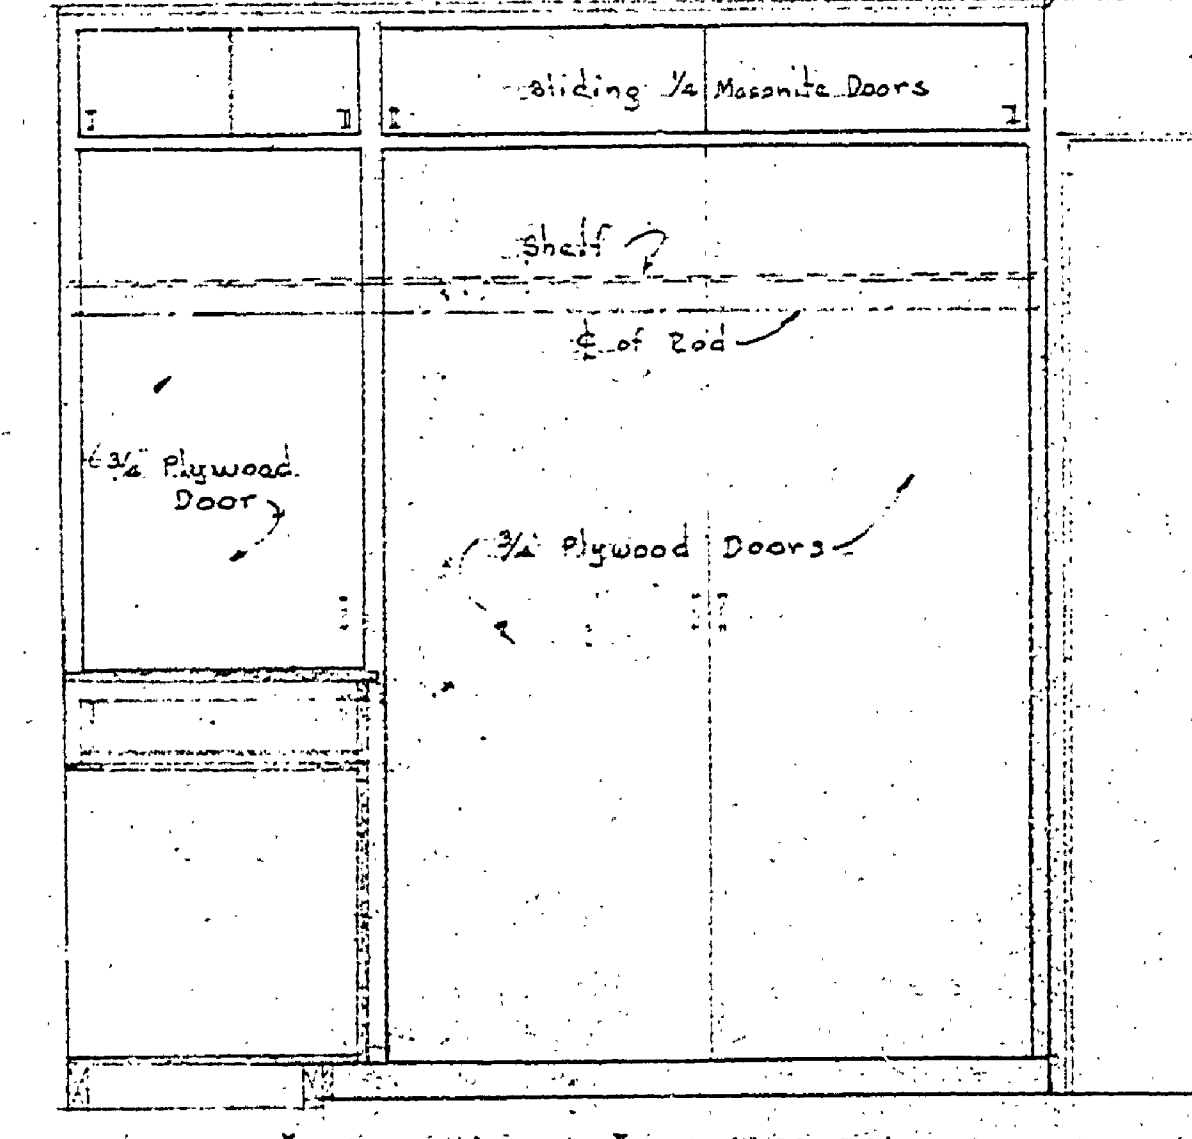 Sliding 1/4 Masonite Doors
Shelf
℄ of Rod
3/4" Plywood
Door
3/4" Plywood Doors